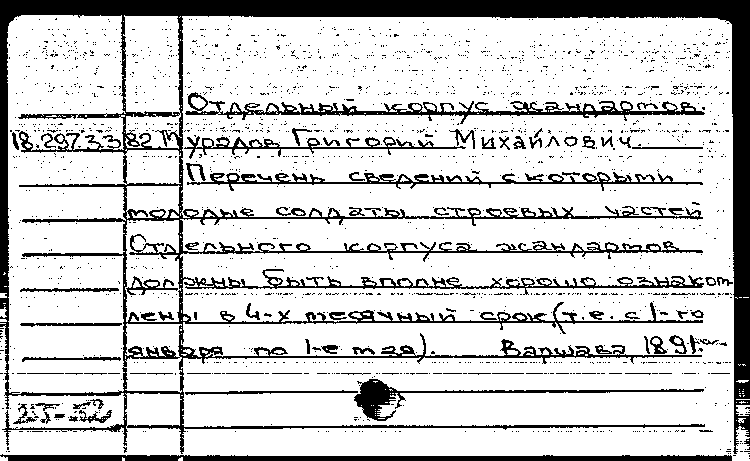 Отдельный корпус жандармов.
18.297.33 82 Мурадов, Григорий Михайлович.
Перечень сведений, с которыми
молодые солдаты строевых частей
Отдельного корпуса жандармов
должны быть вполне хорошо ознаком
лены в 4-х месячный срок (т.е. с 1-го
января по 1-е мая). Варшава, 1891.